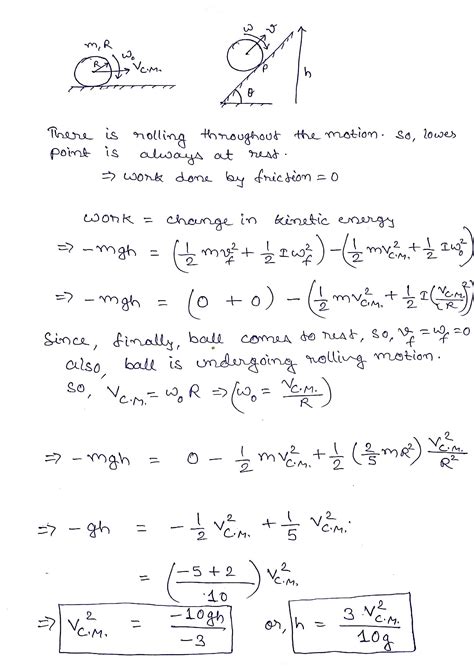 m, R
R ω₀ V_C.M.
ω v
P
θ
h
There is rolling throughout the motion. So, lowes
point is always at rest.
⇒ work done by friction = 0
work = change in kinetic energy
⇒ -mgh = (1/2 mv_f² + 1/2 Iω_f²) - (1/2 mV_C.M.² + 1/2 Iω₀²)
⇒ -mgh = (0 + 0) - (1/2 mV_C.M.² + 1/2 I(V_C.M./R)²)
Since, finally, ball comes to rest, so, v_f = ω_f = 0
also, ball is undergoing rolling motion.
So, V_C.M. = ω₀ R ⇒ (ω₀ = V_C.M./R)
⇒ -mgh = 0 - 1/2 mV_C.M.² + 1/2 (2/5 mR²) V_C.M.²/R²
⇒ -gh = -1/2 V_C.M.² + 1/5 V_C.M.²
= (-5+2/10) V_C.M.²
⇒ V_C.M.² = -10gh/-3 or, h = 3 V_C.M.²/10g